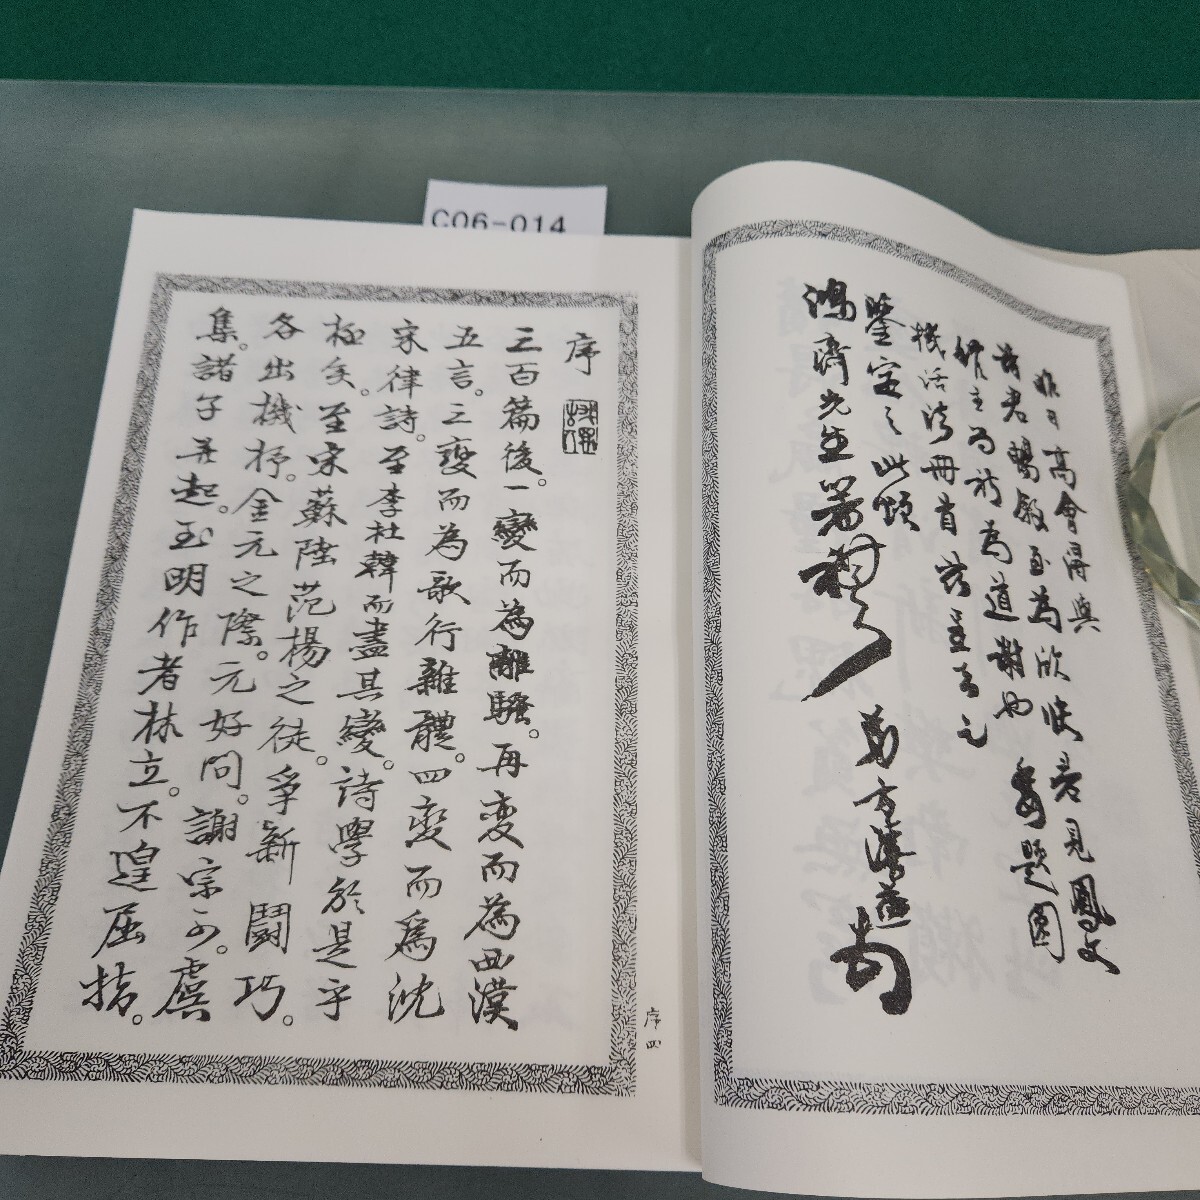 C06-014
昨日高會得與
諸君暢敘至為欣快 見鳳文
為道謝也 題圖
機活法冊首
鑒定之此頌
鴻齋先生箸祺
弟方濬益
序
三百篇後。一變而為離騷。再變而為西漢
五言。三變而為歌行雜體。四變而為沈
宋律詩。至李杜韓而盡其變。詩學於是乎
極矣。至宋蘇陸范楊之徒。爭新鬪巧。
各出機杼。金元之際。元好問。謝宗可。虞
集。諸子并起。至明作者林立。不遑屈指。
序四